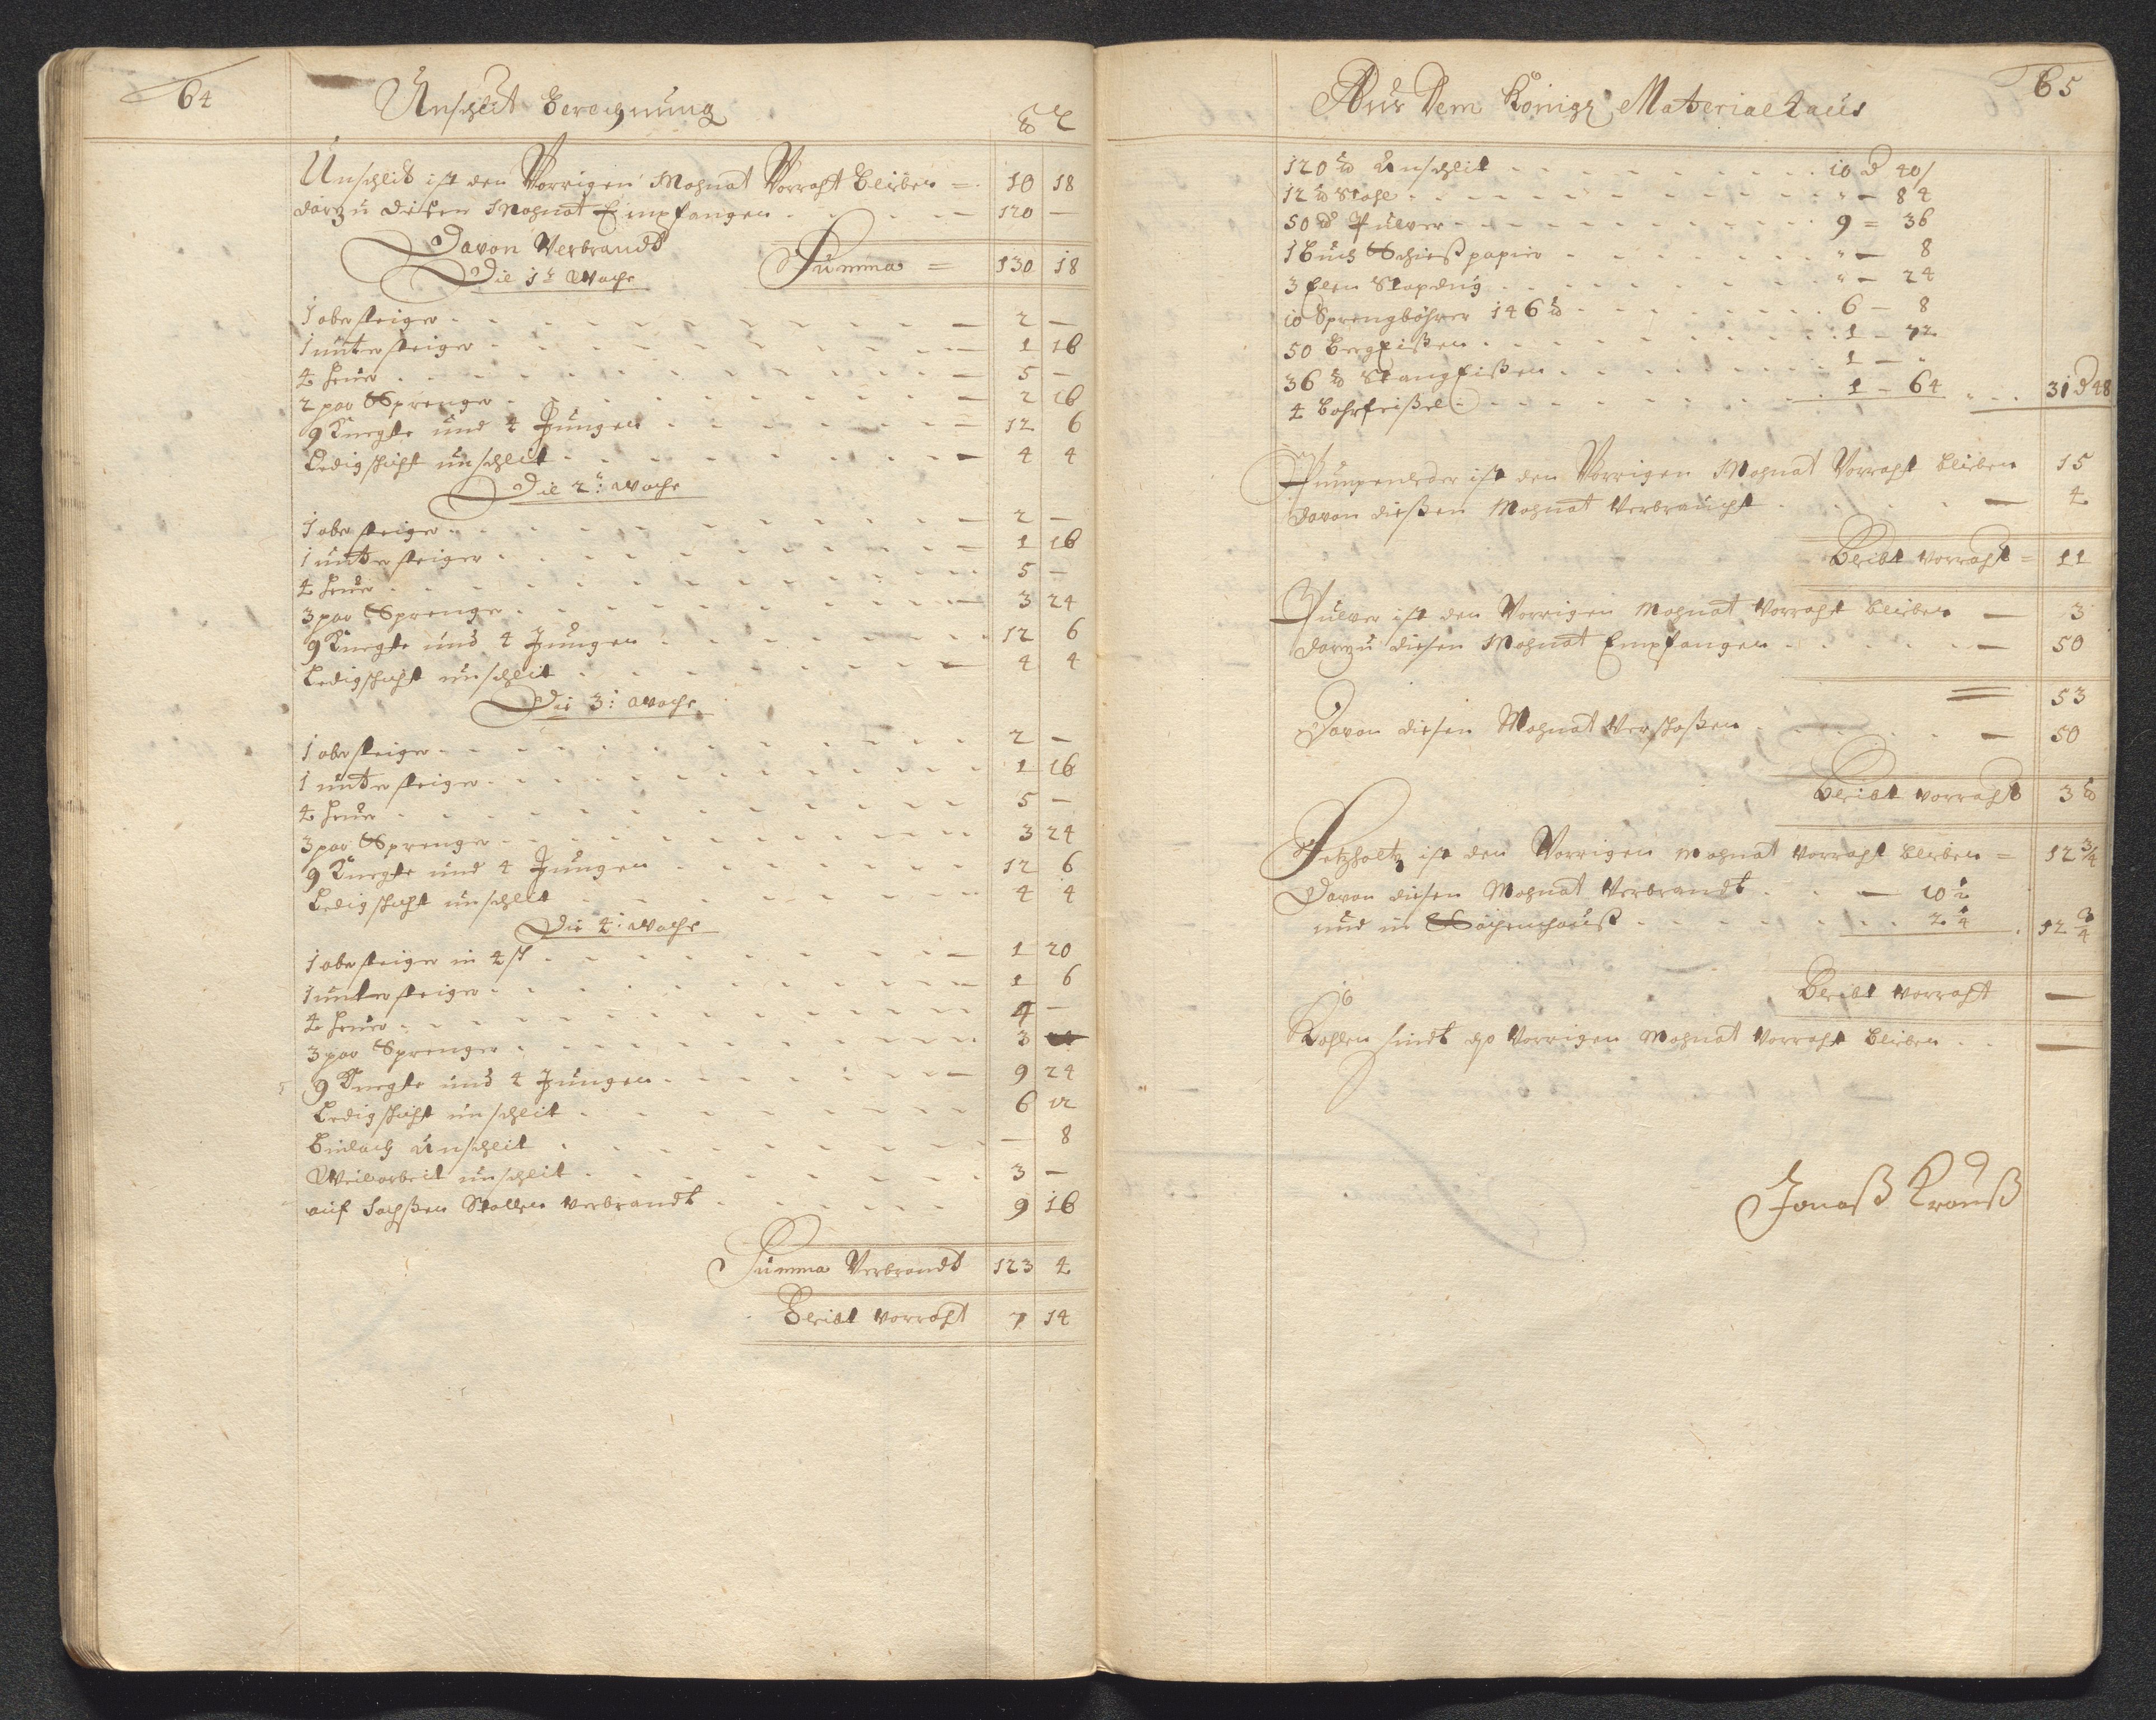 64
Unschlit Berechnung
℔ L
Unschlit ist den Vorrigen Mohnat Vorraht bleiben = 10 18
darzu disen Mohnat Empfangen — 120 —
Davon Verbrandt
Summa = 130 18
Die 1t Woche
1 obersteiger — 2 —
1 untersteiger — 1 16
4 heuer — 5 —
2 par Sprenger — 2 16
9 Knegte und 4 Jungen — 12 6
Ledigschicht unschlit — 4 4
Die 2: Woche
1 obersteiger — 2 —
1 untersteiger — 1 16
4 heuer 5 —
3 par Sprenger — 3 24
9 Knegte und 4 Jungen 12 6
Ledigschicht unschlit — 4 4
Die 3: Woche
1 obersteiger 2 —
1 untersteiger 1 16
4 heuer 5 —
3 par Sprenger 3 24
9 Knegte und 4 Jungen 12 6
Ledigschicht unschlit 4 4
Die 4: Woche
1 obersteiger in 4 sch — 1 20
1 untersteiger 1 6
4 heuer 4 —
3 par Sprenger 3
9 Knegte und 4 Jungen — 9 24
Ledigschicht unschlit 6 12
Unschlit — 8
Weilarbeit unschlit 3 —
auf Sachßen Stollen verbrandt 9 16
Summa Verbrandt 123 4
Bleibt vorraht 7 14
65
Aus Dem Königl Materialhaus
120 ℔ Unschlit 10 d 40
12 ℔ Stahl " — 84
50 ℔ Pulver 9 = 36
1 Buch Schießpapier " — 8
3 Elen " — 24
10 Sprengböhrer 146 ℔ 6 — 8
50 Bergeißen 1 — 72
36 ℔ Stangeißen 1 — "
4 Bohrfeißel 1 — 64 31 d 48
Pumpenleder ist den Vorrigen Mohnat Vorraht bleiben 15
davon dießen Mohnat Verbraucht — 4
Bleibt vorraht = 11
Pulver ist den Vorrigen Mohnat Vorraht bleiben — 3
darzu diesen Mohnat Empfangen — 50
= 53
Davon diesen Mohnat Verschoßen — 50
Bleibt vorraht 3 ℔
Setzholtz ist den Vorrigen Mohnat vorraht bleiben = 12 3/4
Davon diesen Mohnat Verbrandt — 10 1/2
und in 2 1/4 12 3/4
Bleibt vorraht —
Kohlen sindt Vorrigen Mohnat Vorraht bleiben —
Jonaß Krauß